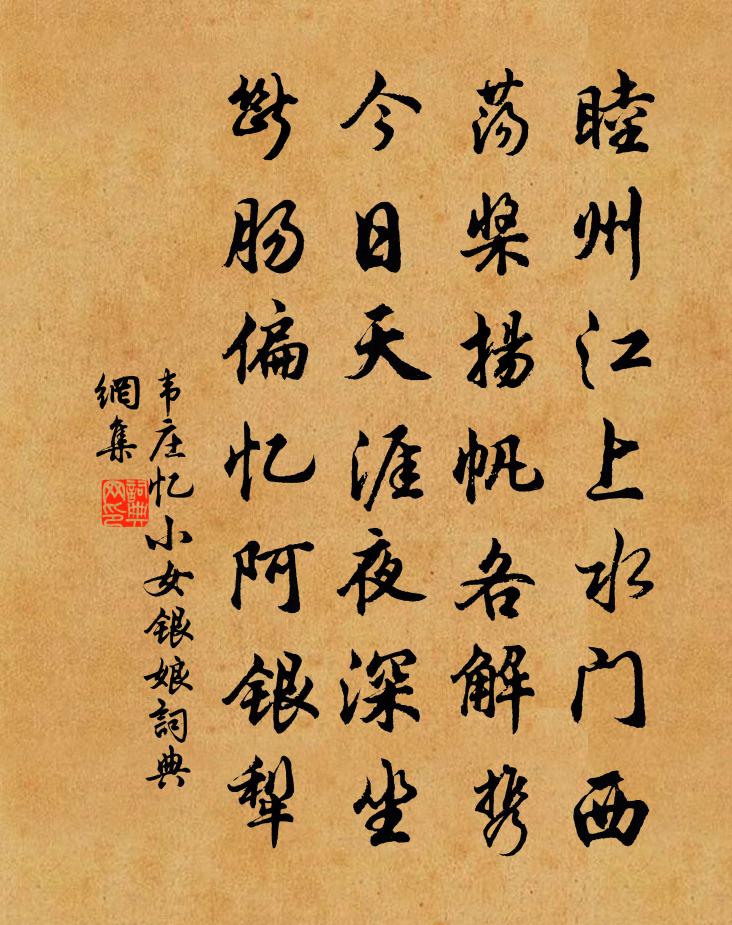 睦州江上水门西
荡桨揚帆各解携
今日天涯夜深坐
断肠偏忆阿銀犁
韦庄忆小女銀娘詞典
網集
詞典
网印